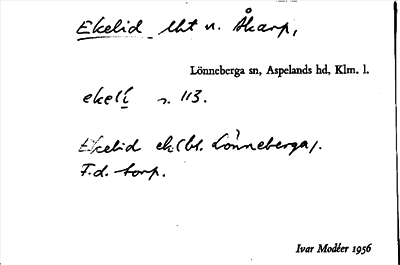 Ekelid lht u. Åkarp,
Lönneberga sn, Aspelands hd, Klm. l.
ekelí s. 113.
Ekelid ek(bl. Lönneberga).
F.d. torp.
Ivar Modéer 1956